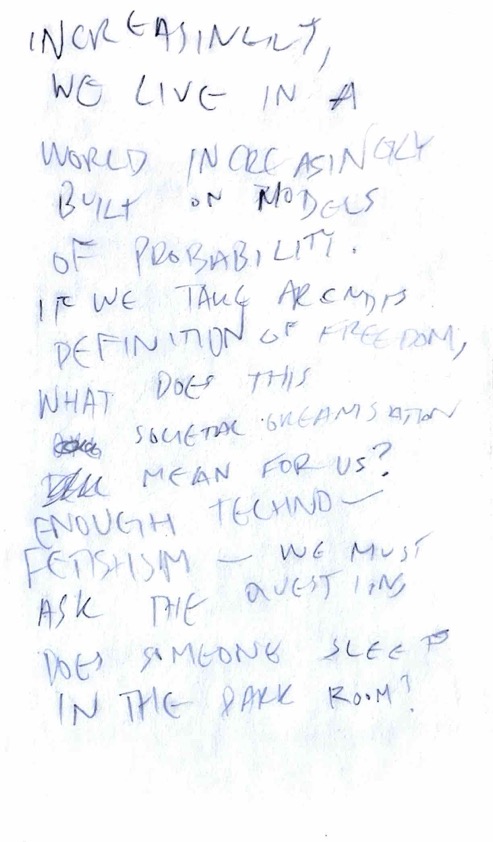 INCREASINGLY,
WE LIVE IN A
WORLD INCREASINGLY
BUILT ON MODELS
OF PROBABILITY.
IF WE TAKE ARENDTS
DEFINITION OF FREEDOM,
WHAT DOES THIS
SOCIETAL ORGANISATION
MEAN FOR US?
ENOUGH TECHNO-
FETISHISM - WE MUST
ASK THE QUESTIONS
DOES SOMEONE SLEEP
IN THE DARK ROOM?